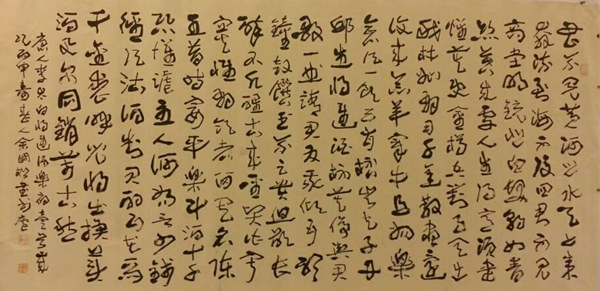 君不見黃河之水天上來
奔流到海不復回君不見
高堂明鏡悲白髮朝如青
絲暮成雪人生得意須盡
歡莫使金樽空對月天生
我材必有用千金散盡還
復來烹羊宰牛且為樂
會須一飲三百杯岑夫子丹
丘生將進酒杯莫停與君
歌一曲請君為我傾耳聽
鐘鼓饌玉不足貴但願長
醉不願醒古來聖賢皆寂
寞惟有飲者留其名陳
王昔時宴平樂斗酒十千
恣歡謔主人何為言少錢
徑須沽酒對君酌五花馬
千金裘呼兒將出換美
酒與爾同銷萬古愁
唐人李太白將進酒樂府